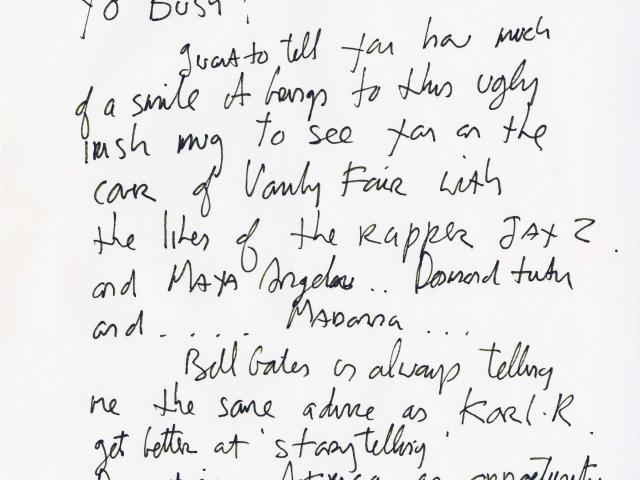 Yo Bush!
I want to tell you how much
of a smile it brings to this ugly
Irish mug to see you on the
cover of Vanity Fair with
the likes of the RAPPER JAY Z.
and MAYA Angelou.. Desmond tutu
and ..... MADONNA ...
Bill Gates is always telling
me the same advice as Karl.R.
get better at 'storytelling'
Africa as opportunity